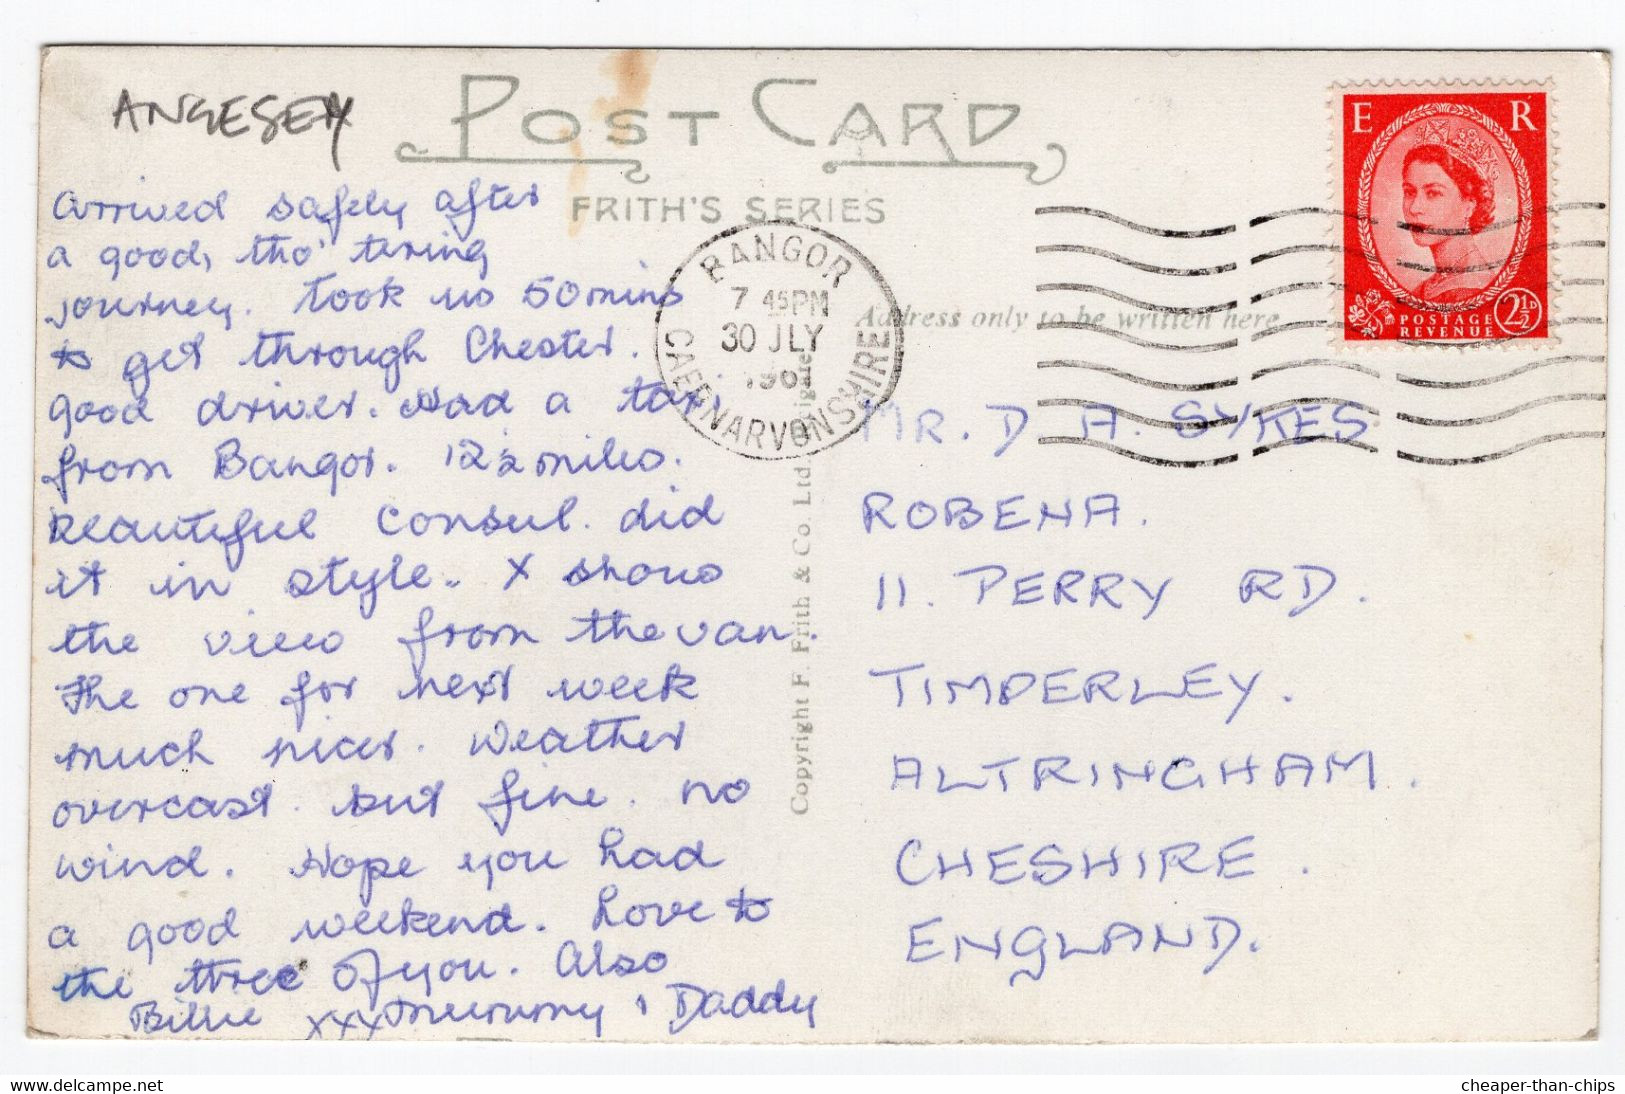 ANGESEY
POST CARD
FRITH'S SERIES
E R
POSTAGE
REVENUE
2½D
BANGOR
7 45PM
30 JLY
196
CAERNARVONSHIRE
Address only to be written here
Copyright F. Frith & Co. Ltd. Reigate
Arrived safely after
a good, tho' tiring
journey. Took us 50 mins
to get through Chester.
good driver. Had a taxi
from Bangor. 12½ miles.
Beautiful Consul. did
it in style. X shows
the view from the van.
The one for next week
much nicer. Weather
overcast. but fine. no
wind. Hope you had
a good weekend. Love to
the three of you. Also
Billie xxx Mummy & Daddy
MR. D. A. SYKES
ROBENA.
11. PERRY RD.
TIMPERLEY.
ALTRINGHAM.
CHESHIRE.
ENGLAND.
cheaper-than-chips